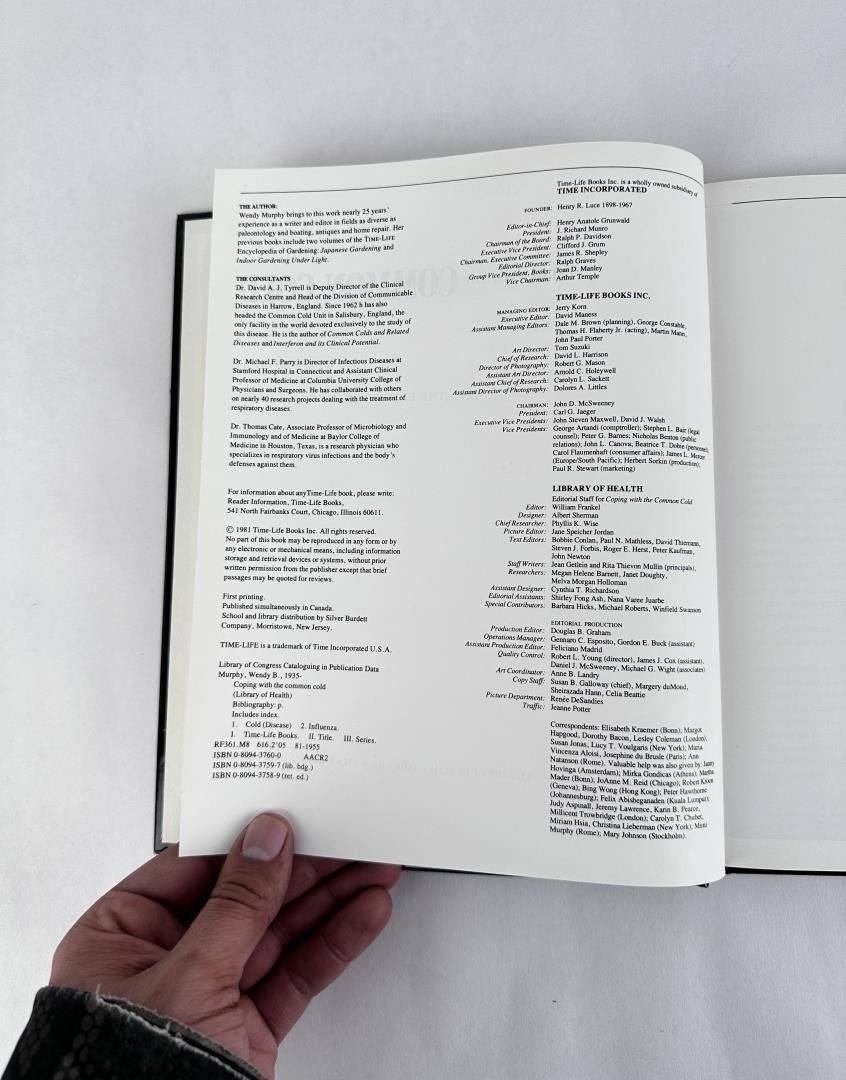 THE AUTHOR:
Wendy Murphy brings to this work nearly 25 years'
experience as a writer and editor in fields as diverse as
paleontology and boating, antiques and home repair. Her
previous books include two volumes of the TIME-LIFE
Encyclopedia of Gardening: Japanese Gardening and
Indoor Gardening Under Light.
THE CONSULTANTS
Dr. David A. J. Tyrrell is Deputy Director of the Clinical
Research Centre and Head of the Division of Communicable
Diseases in Harrow, England. Since 1962 h has also
headed the Common Cold Unit in Salisbury, England, the
only facility in the world devoted exclusively to the study of
this disease. He is the author of Common Colds and Related
Diseases and Interferon and its Clinical Potential.
Dr. Michael F. Parry is Director of Infectious Diseases at
Stamford Hospital in Connecticut and Assistant Clinical
Professor of Medicine at Columbia University College of
Physicians and Surgeons. He has collaborated with others
on nearly 40 research projects dealing with the treatment of
respiratory diseases.
Dr. Thomas Cate, Associate Professor of Microbiology and
Immunology and of Medicine at Baylor College of
Medicine in Houston, Texas, is a research physician who
specializes in respiratory virus infections and the body's
defenses against them.
For information about anyTime-Life book, please write:
Reader Information, Time-Life Books,
541 North Fairbanks Court, Chicago, Illinois 60611.
© 1981 Time-Life Books Inc. All rights reserved.
No part of this book may be reproduced in any form or by
any electronic or mechanical means, including information
storage and retrieval devices or systems, without prior
written permission from the publisher except that brief
passages may be quoted for reviews.
First printing.
Published simultaneously in Canada.
School and library distribution by Silver Burdett
Company, Morristown, New Jersey.
TIME-LIFE is a trademark of Time Incorporated U.S.A.
Library of Congress Cataloguing in Publication Data
Murphy, Wendy B., 1935-
Coping with the common cold
(Library of Health)
Bibliography: p.
Includes index.
1. Cold (Disease) 2. Influenza.
I. Time-Life Books. II. Title. III. Series.
RF361.M8 616.2'05 81-1955
ISBN 0-8094-3760-0 AACR2
ISBN 0-8094-3759-7 (lib. bdg.)
ISBN 0-8094-3758-9 (ret. ed.)
Time-Life Books Inc. is a wholly owned subsidiary of
TIME INCORPORATED
FOUNDER: Henry R. Luce 1898-1967
Editor-in-Chief: Henry Anatole Grunwald
President: J. Richard Munro
Chairman of the Board: Ralph P. Davidson
Executive Vice President: Clifford J. Grum
Chairman, Executive Committee: James R. Shepley
Editorial Director: Ralph Graves
Group Vice President, Books: Joan D. Manley
Vice Chairman: Arthur Temple
TIME-LIFE BOOKS INC.
MANAGING EDITOR: Jerry Korn
Executive Editor: David Maness
Assistant Managing Editors: Dale M. Brown (planning), George Constable,
Thomas H. Flaherty Jr. (acting), Martin Mann,
John Paul Porter
Art Director: Tom Suzuki
Chief of Research: David L. Harrison
Director of Photography: Robert G. Mason
Assistant Art Director: Arnold C. Holeywell
Assistant Chief of Research: Carolyn L. Sackett
Assistant Director of Photography: Dolores A. Littles
CHAIRMAN: John D. McSweeney
President: Carl G. Jaeger
Executive Vice Presidents: John Steven Maxwell, David J. Walsh
Vice Presidents: George Artandi (comptroller); Stephen L. Bair (legal
counsel); Peter G. Barnes; Nicholas Benton (public
relations); John L. Canova; Beatrice T. Dobie (personnel);
Carol Flaumenhaft (consumer affairs); James L. Mercer
(Europe/South Pacific); Herbert Sorkin (production);
Paul R. Stewart (marketing)
LIBRARY OF HEALTH
Editorial Staff for Coping with the Common Cold
Editor: William Frankel
Designer: Albert Sherman
Chief Researcher: Phyllis K. Wise
Picture Editor: Jane Speicher Jordan
Text Editors: Bobbie Conlan, Paul N. Mathless, David Thiemann,
Steven J. Forbis, Roger E. Herst, Peter Kaufman,
John Newton
Staff Writers: Jean Getlein and Rita Thievon Mullin (principals),
Researchers: Megan Helene Barnett, Janet Doughty,
Melva Morgan Holloman
Assistant Designer: Cynthia T. Richardson
Editorial Assistants: Shirley Fong Ash, Nana Varee Juarbe
Special Contributors: Barbara Hicks, Michael Roberts, Winfield Swanson
EDITORIAL PRODUCTION
Production Editor: Douglas B. Graham
Operations Manager: Gennaro C. Esposito, Gordon E. Buck (assistant)
Assistant Production Editor: Feliciano Madrid
Quality Control: Robert L. Young (director), James J. Cox (assistant),
Daniel J. McSweeney, Michael G. Wight (associates)
Art Coordinator: Anne B. Landry
Copy Staff: Susan B. Galloway (chief), Margery duMond,
Sheirazada Hann, Celia Beattie
Picture Department: Renée DeSandies
Traffic: Jeanne Potter
Correspondents: Elisabeth Kraemer (Bonn); Margot
Hapgood, Dorothy Bacon, Lesley Coleman (London);
Susan Jonas, Lucy T. Voulgaris (New York); Maria
Vincenza Aloisi, Josephine du Brusle (Paris); Ann
Natanson (Rome). Valuable help was also given by: Janny
Hovinga (Amsterdam); Mirka Gondicas (Athens); Martha
Mader (Bonn); JoAnne M. Reid (Chicago); Robert Kroon
(Geneva); Bing Wong (Hong Kong); Peter Hawthorne
(Johannesburg); Felix Abisheganaden (Kuala Lumpur);
Judy Aspinall, Jeremy Lawrence, Karin B. Pearce,
Millicent Trowbridge (London); Carolyn T. Chubet,
Miriam Hsia, Christina Lieberman (New York); Mimi
Murphy (Rome); Mary Johnson (Stockholm).